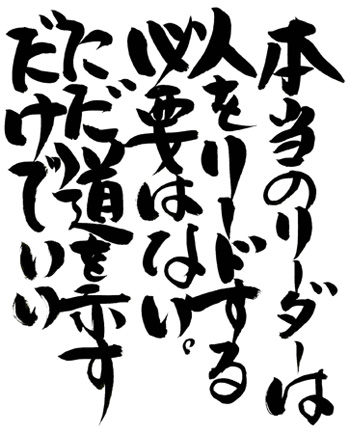 本当のリーダーは
人をリードする
必要はない。
ただ道を示す
だけでいい